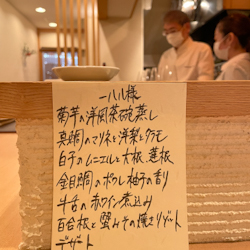 一八様
菊芋の洋風茶碗蒸し
真鯛のマリネを洋梨とクラモ
白子のムニエルと大根 蓮根
金目鯛のポワレ柚子の香り
牛舌の赤ワイン煮込み
百合根と蟹みその焼きリゾート
デザート